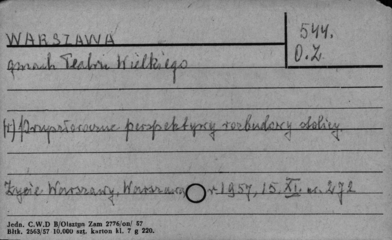 WARSZAWA
544.
O.Z.
gmach Teatru Wielkiego
(r) Przyszłościowe perspektywy rozbudowy stolicy.
Życie Warszawy, Warszawa r 1957, 15. XI. nr. 272
Jedn. C.W.D B/Olsztyn Zam 2776/on/ 57
Błtk. 2563/57 10.000 szt. karton kl. 7 g 220.